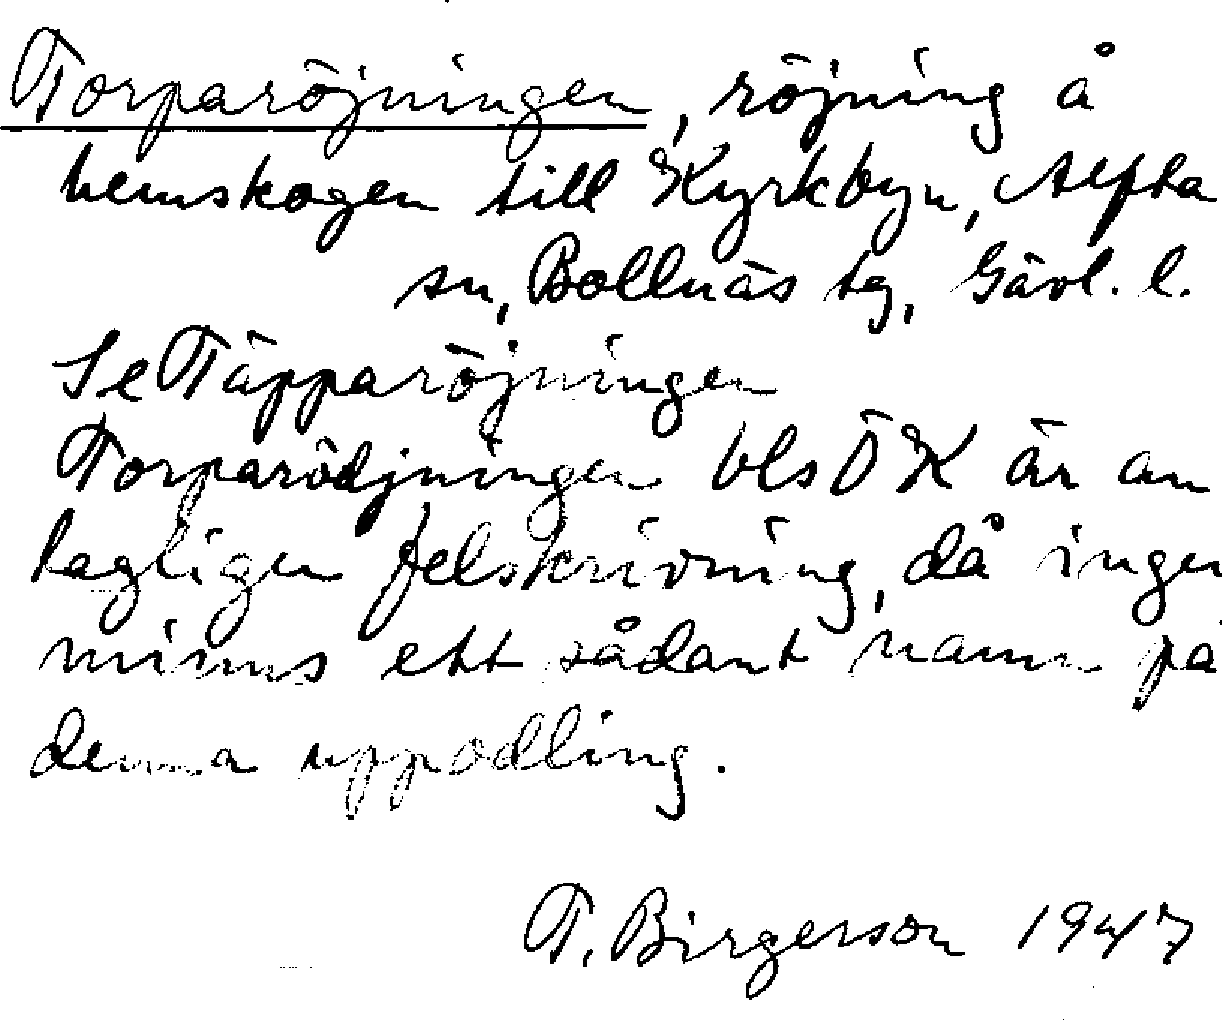 Torparöjningen, röjning å
hemskogen till Kyrkbyn, Alfta
sn, Bollnäs tg, Gävl. l.
Se Täpparöjningen
Torparödjningen bls ÖK är an
tagligen felskrivning, då ingen
minns ett sådant namn på
denna uppodling.
T. Birgerson 1947